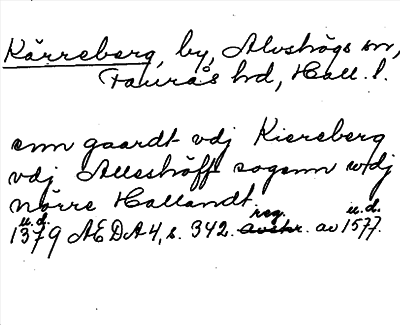 Kärreberg, by, Alvshögs sn,
Faurås hd, Hall. l.
enn gaardt vdj Kiereberg
vdj Alleshöff sogenn wdj
nörre Hallandt
u.d. reg. u.d.
1379 AEDA 4, s. 342. avskr. av 1577.